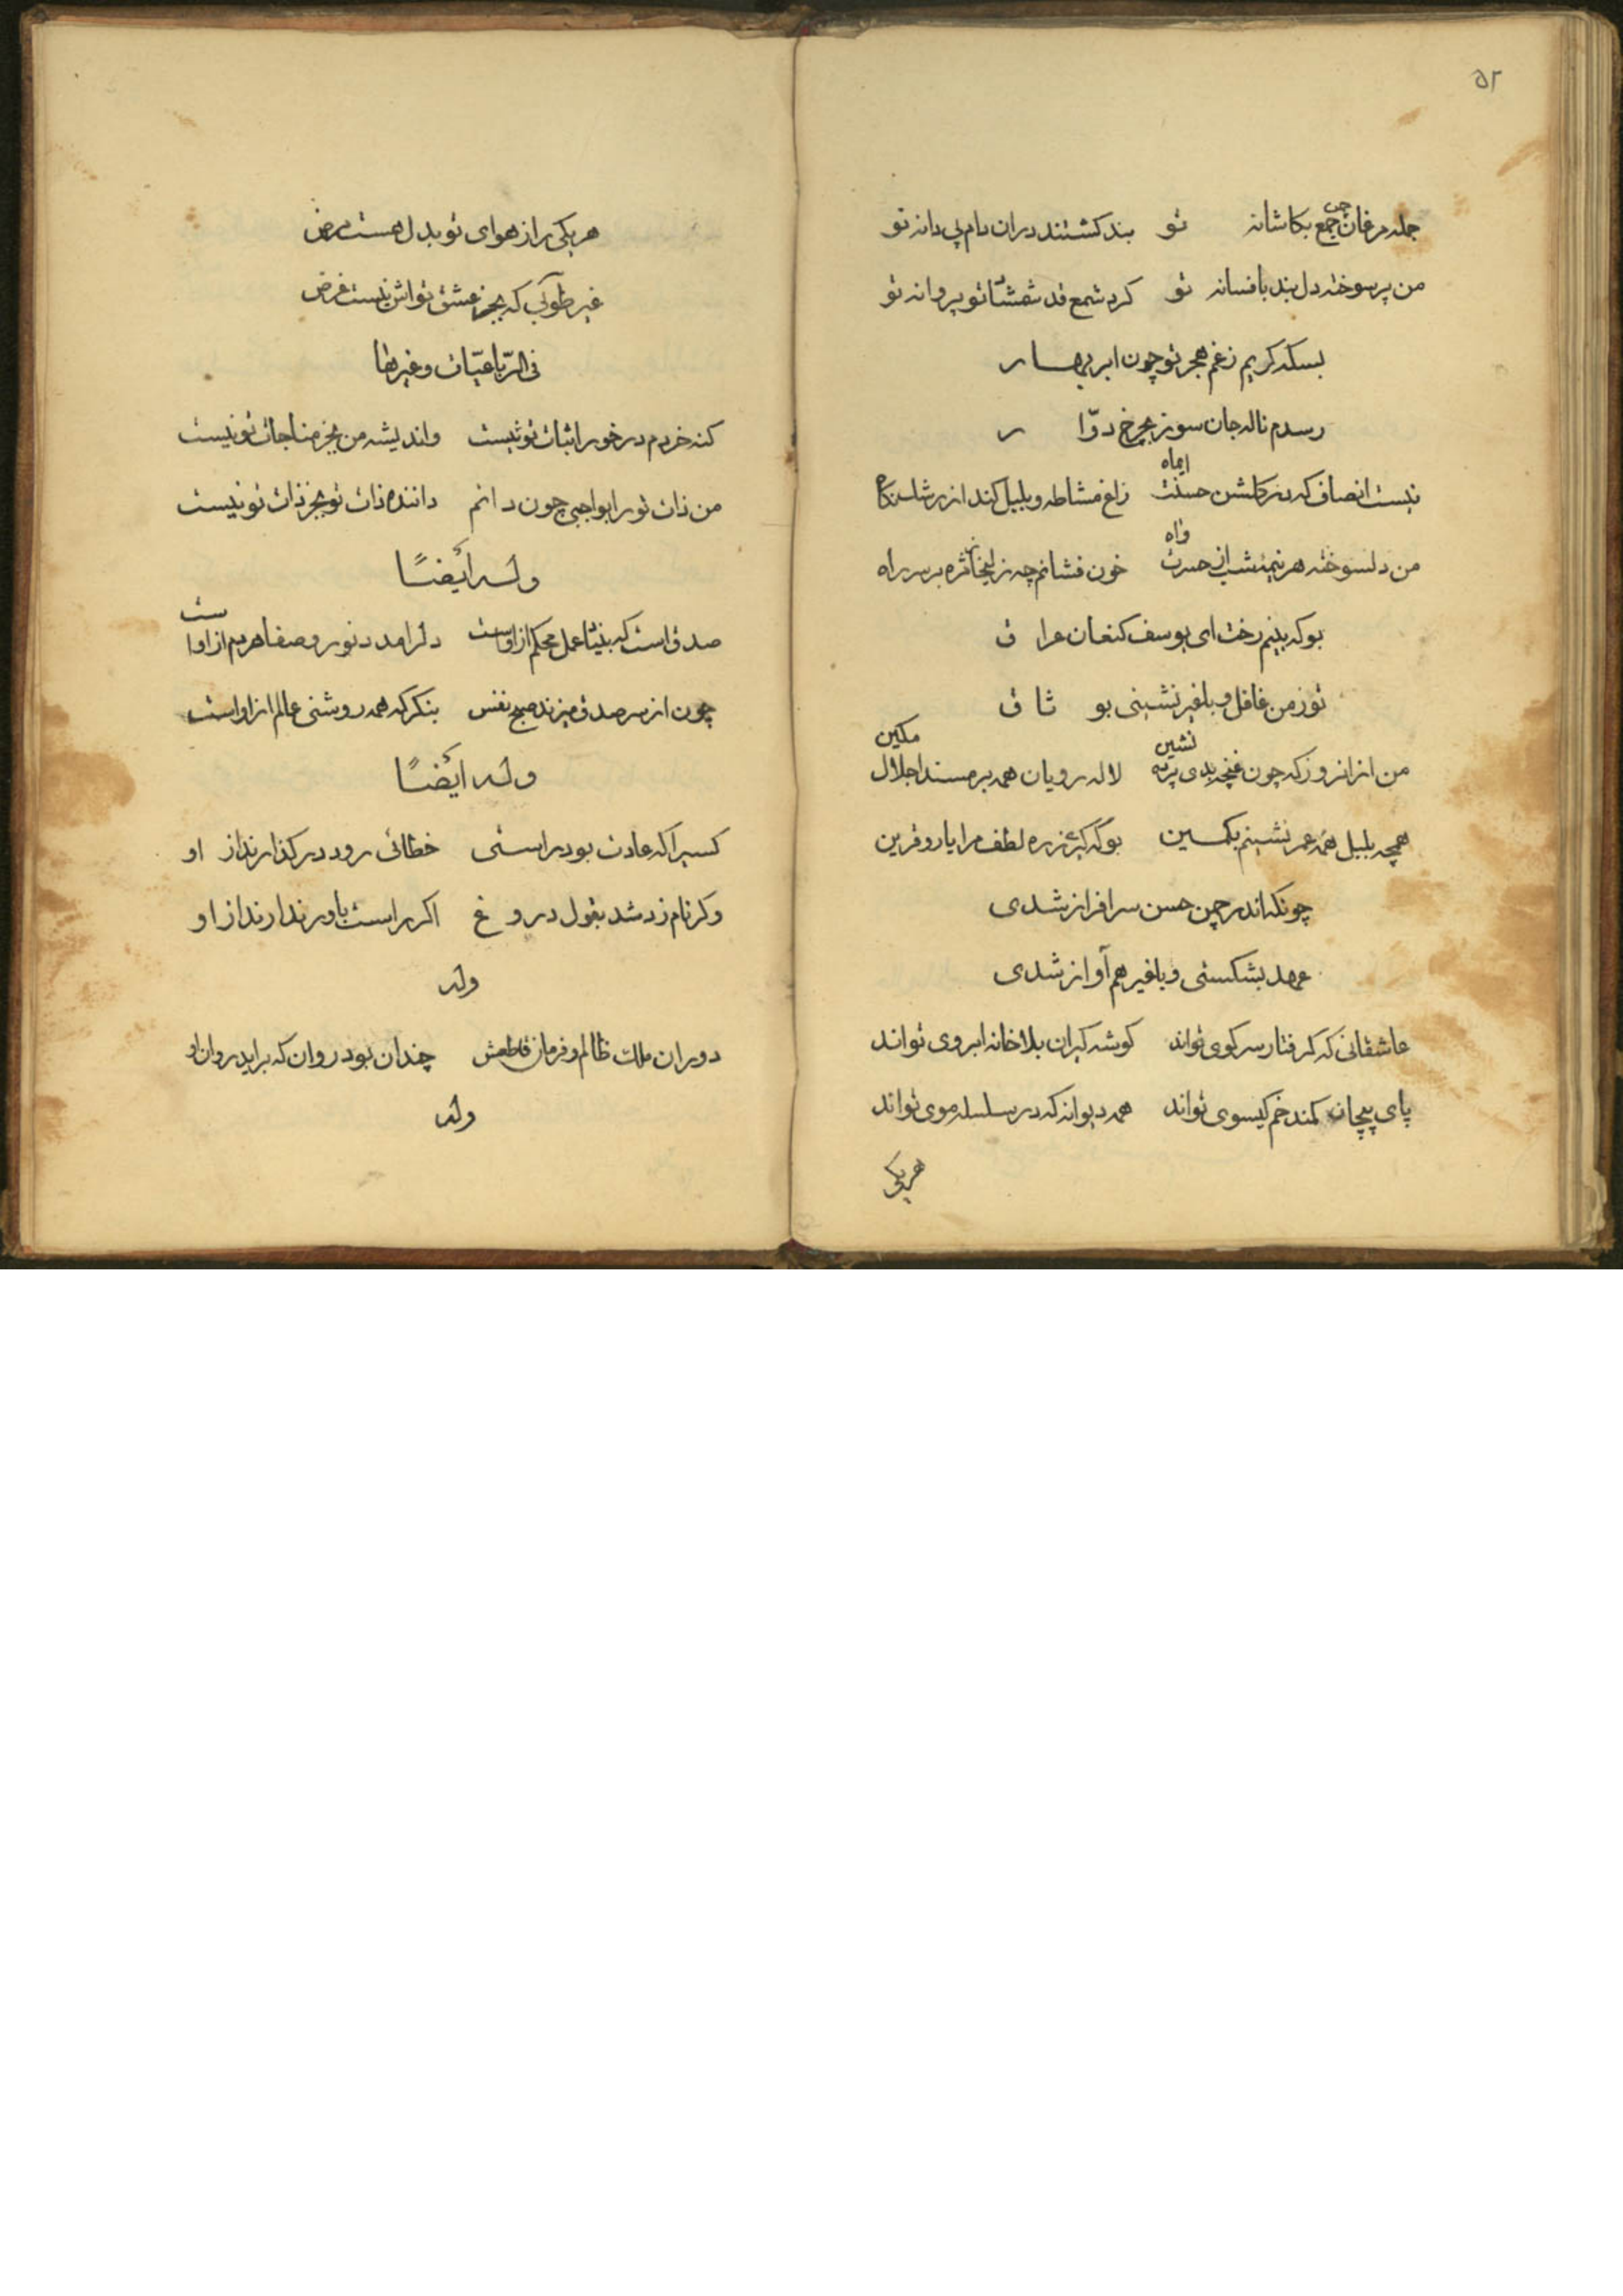 ۵۲
جمله مرغان چمن جمع بکاشانه تو بند کشتند دران دام پی دانه تو
من پر سوخته دل بند بافسانه تو کرد شمع قد شمشاد تو پروانه تو
بسکه کریم زغم هجر تو چون ابر بهار
رسدم ناله جان سوز بچرخ دوّار
نیست انصاف که در کلشن حسنت ایماه زاغ مشاطه و بلبل کند از رشک نکاه
من دلسوخته هر نیمه شب از حسرت واه خون فشانم چه زلیخا ز مژه بر سر راه
بو که بینم رخت ای یوسف کنعان عراق
تو ز من غافل و با غیر نشینی بوثاق
من از انروز که چون غنچه بدی پرده نشین لاله رویان همه بر مسند اجلال مکین
همچه بلبل همه عمر نشینم بکمین بو که کیری ز ره لطف مرا یار و قرین
چونکه اندر چمن حسن سرافراز شدی
عهد بشکستی و با غیر هم آواز شدی
عاشقانی که کرفتار سر کوی تواند کوشه کیران بلا خانه ابروی تواند
پای پیچان کمند خم کیسوی تواند همه دیوانه که در سلسله موی تواند
هر یکی
هر یکی را ز هوای تو بدل هست مرض
غیر طوبی که بجز عشق تواش نیست غرض
فی الرّباعیّات و غیرها
کنه خردم در خور اثبات تو نیست واندیشه من بجز مناجات تو نیست
من ذات تو را بواجبی چون دانم داننده ذات تو بجز ذات تو نیست
وله أیضًا
صدق است که بنیاد عمل محکم ازاوست دلرا مدد نور و صفا هردم ازاوست
چون از سر صدق میزند صبح نفس بنکر که همه روشنی عالم ازاواست
وله ایضًا
کسیرا که عادت بود راستی خطائی رود در کذارند از او
وکر نام زد شد بقول دروغ اکر راست باور ندارند از او
وله
دوران ملک ظالم و فرمان قاطعش چندان بود روان که براید روان او
وله